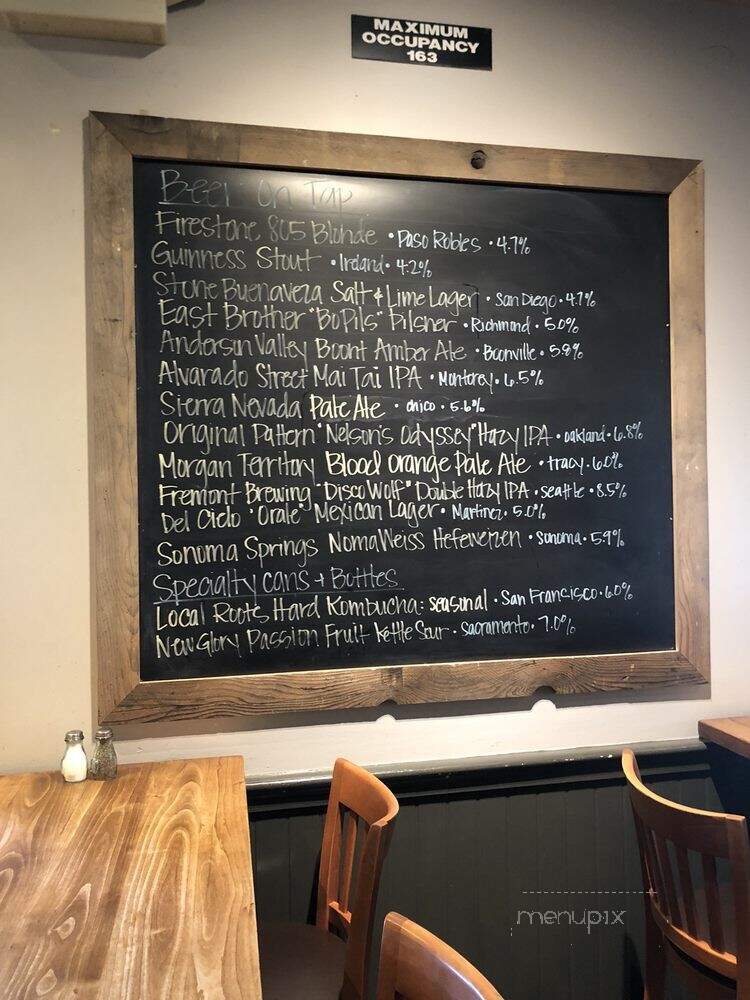 MAXIMUM
OCCUPANCY
163
Beer On Tap
Firestone 805 Blonde • Paso Robles • 4.7%
Guinness Stout • Ireland • 4.2%
Stone Buenaveza Salt & Lime Lager • San Diego • 4.7%
East Brother "Bo Pils" Pilsner • Richmond • 5.0%
Anderson Valley Boont Amber Ale • Boonville • 5.8%
Alvarado Street Mai Tai IPA • Monterey • 6.5%
Sierra Nevada Pale Ale • chico • 5.6%
Original Pattern "Nelson's Odyssey" Hazy IPA • oakland • 6.8%
Morgan Territory Blood Orange Pale Ale • tracy • 6.0%
Fremont Brewing "Disco Wolf" Double Hazy IPA • seattle • 8.5%
Del Cielo "Orale" Mexican Lager • Martinez • 5.0%
Sonoma Springs NomaWeiss Hefeweizen • sonoma • 5.9%
Specialty cans + Bottles
Local Roots Hard Kombucha: seasonal • San Francisco • 6.0%
New Glory Passion Fruit kettle Sour • sacramento • 7.0%
menupix